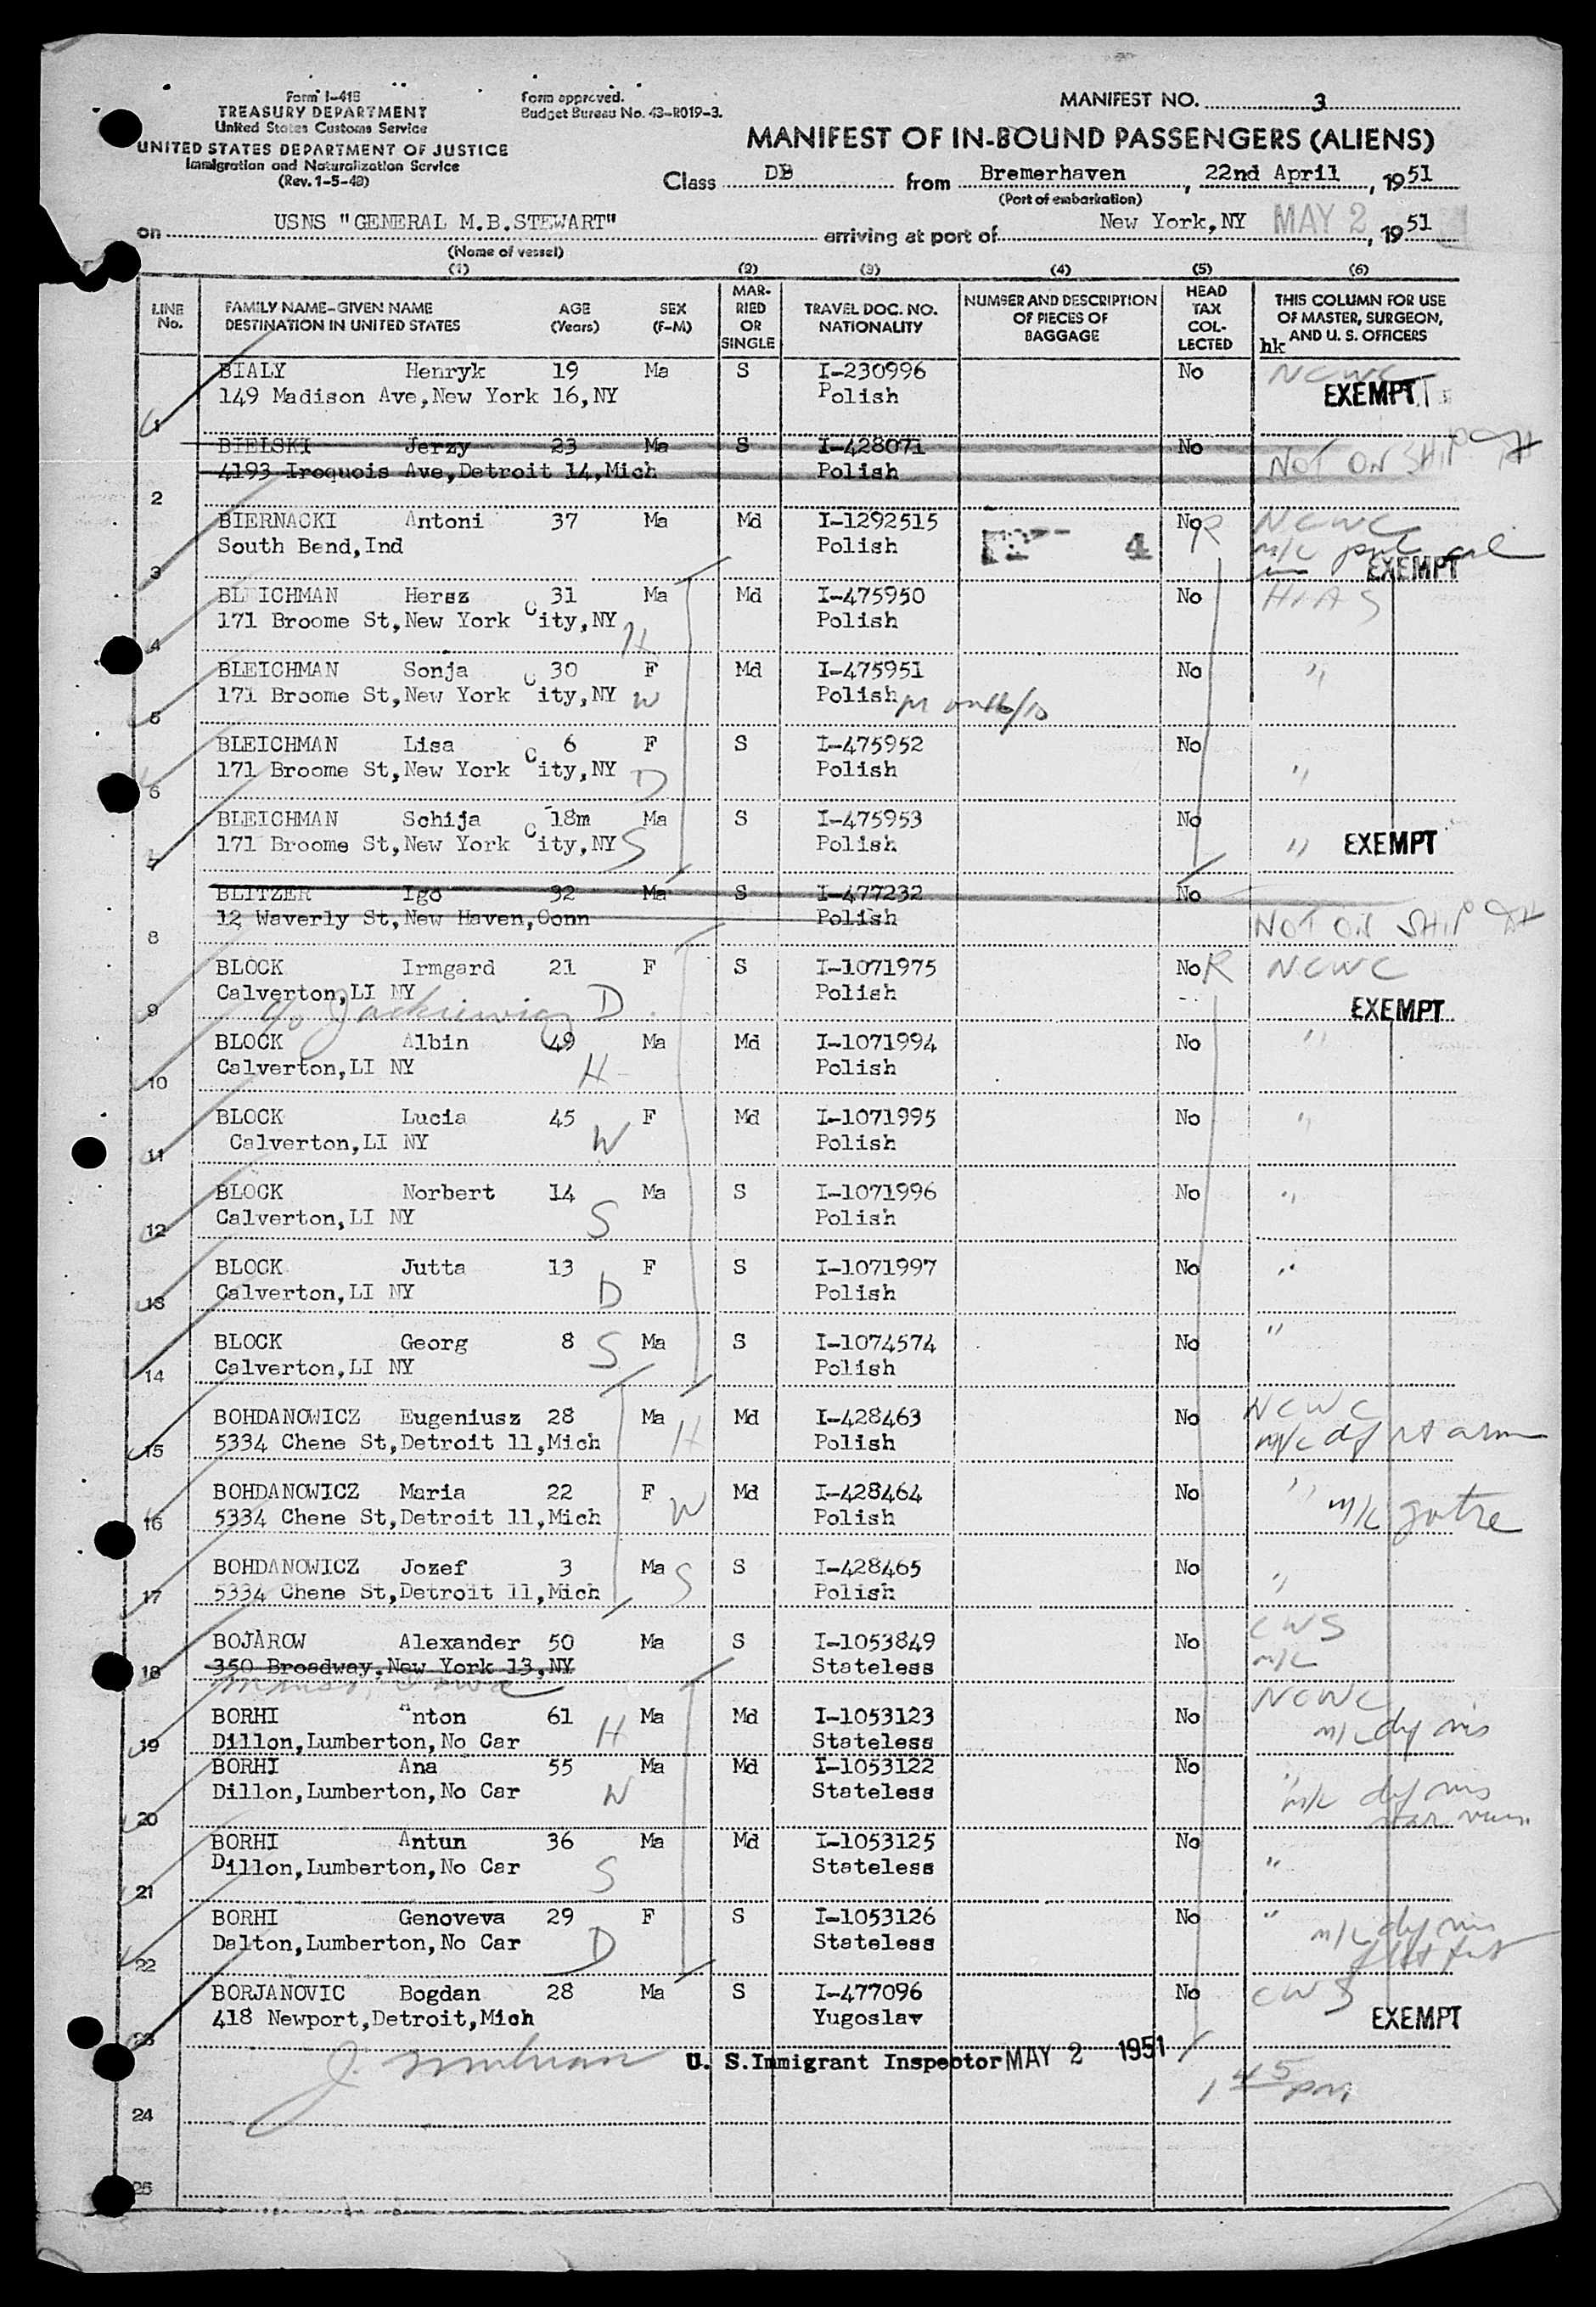 Form I-418
TREASURY DEPARTMENT
United States Customs Service
UNITED STATES DEPARTMENT OF JUSTICE
Immigration and Naturalization Service
(Rev. 1-5-49)
Form approved.
Budget Bureau No. 43-R019-3.
MANIFEST NO. 3
MANIFEST OF IN-BOUND PASSENGERS (ALIENS)
Class DB from Bremerhaven, 22nd April, 1951
(Port of embarkation)
on USNS "GENERAL M.B.STEWART" arriving at port of New York,NY MAY 2, 1951
(Name of vessel)
(1) (2) (3) (4) (5) (6)
LINE No.
FAMILY NAME-GIVEN NAME AGE SEX
DESTINATION IN UNITED STATES (Years) (F-M)
MARRIED OR SINGLE
TRAVEL DOC. NO. NATIONALITY
NUMBER AND DESCRIPTION OF PIECES OF BAGGAGE
HEAD TAX COLLECTED
THIS COLUMN FOR USE OF MASTER, SURGEON, AND U. S. OFFICERS
hk
BIALY Henryk 19 Ma S I-230996 No NCWC
149 Madison Ave,New York 16,NY Polish EXEMPT
1
BIELSKI Jerzy 23 Ma S I-428071 No
4193 Iroquois Ave,Detroit 14,Mich Polish NOT ON SHIP
2
BIERNACKI Antoni 37 Ma Md I-1292515 No R NCWC
South Bend,Ind Polish 4 m/c
3 EXEMPT
BLEICHMAN Hersz 31 Ma Md I-475950 No HIAS
171 Broome St,New York City,NY H Polish
4
BLEICHMAN Sonja 30 F Md I-475951 No "
171 Broome St,New York City,NY W Polish
5
BLEICHMAN Lisa 6 F S I-475952 No
171 Broome St,New York City,NY D Polish "
6
BLEICHMAN Schija 18m Ma S I-475953 No
171 Broome St,New York City,NY S Polish " EXEMPT
7
BLITZER Igo 32 Ma S I-477232 No
12 Waverly St,New Haven,Conn Polish NOT ON SHIP
8
BLOCK Irmgard 21 F S I-1071975 No R NCWC
Calverton,LI NY D Polish
9 c/o Jackiewicz EXEMPT
BLOCK Albin 49 Ma Md I-1071994 No "
Calverton,LI NY H Polish
10
BLOCK Lucia 45 F Md I-1071995 No "
Calverton,LI NY W Polish
11
BLOCK Norbert 14 Ma S I-1071996 No "
Calverton,LI NY S Polish
12
BLOCK Jutta 13 F S I-1071997 No "
Calverton,LI NY D Polish
13
BLOCK Georg 8 S Ma S I-1074574 No "
Calverton,LI NY Polish
14
BOHDANOWICZ Eugeniusz 28 Ma H Md I-428463 No NCWC
5334 Chene St,Detroit 11,Mich Polish m/c df rt arm
15
BOHDANOWICZ Maria 22 F W Md I-428464 No "
5334 Chene St,Detroit 11,Mich Polish m/c goitre
16
BOHDANOWICZ Jozef 3 Ma S S I-428465 No "
5334 Chene St,Detroit 11,Mich Polish
17
BOJAROW Alexander 50 Ma S I-1053849 No CWS
350 Broadway,New York 13,NY Stateless m/c
18
BORHI Anton 61 H Ma Md I-1053123 No NCWC
Dillon,Lumberton,No Car Stateless m/c
19
BORHI Ana 55 Ma Md I-1053122 No "
Dillon,Lumberton,No Car W Stateless m/c
20
BORHI Antun 36 Ma Md I-1053125 No
Dillon,Lumberton,No Car S Stateless "
21
BORHI Genoveva 29 F S I-1053126 No "
Dalton,Lumberton,No Car D Stateless m/c
22
BORJANOVIC Bogdan 28 Ma S I-477096 No CWS
418 Newport,Detroit,Mich Yugoslav EXEMPT
23
U. S.Immigrant Inspector MAY 2 1951
1 45 pm
24
25